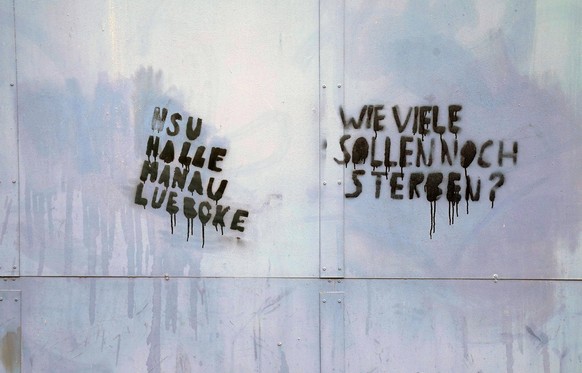 NSU
HALLE
HANAU
LUEBCKE
WIE VIELE
SOLLEN NOCH
STERBEN?